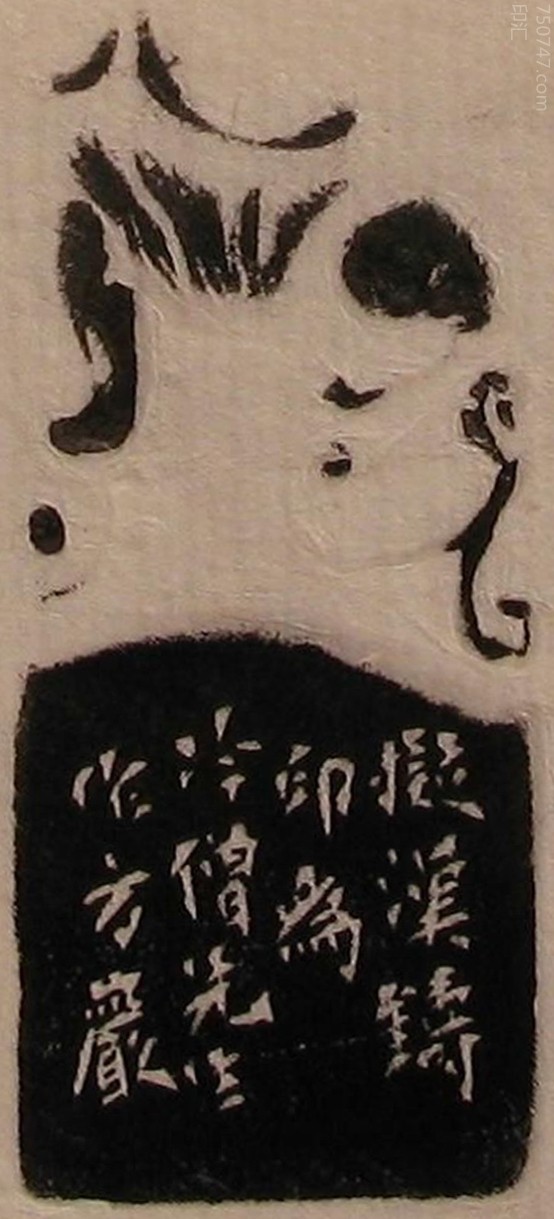 擬漢鑄
印為
冷僧先生
作方巖
750747.com
印汇